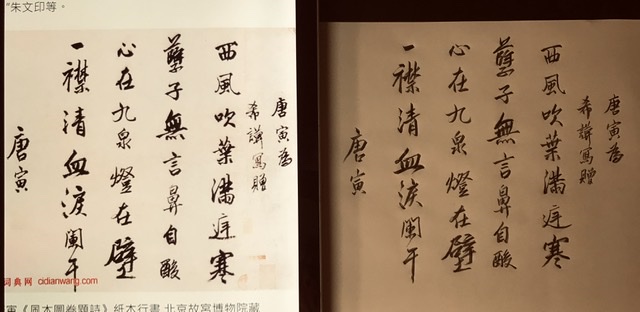 ”朱文印等。
唐寅為
希謨寫贈
西風吹葉滿庭寒
孽子無言鼻自酸
心在九泉燈在壁
一襟清血淚闌干
唐寅
词典网 cidianwang.com
寅《風木圖卷題詩》紙本行書 北京故宮博物院藏
唐寅為
希謨寫贈
西風吹葉滿庭寒
孽子無言鼻自酸
心在九泉燈在壁
一襟清血淚闌干
唐寅